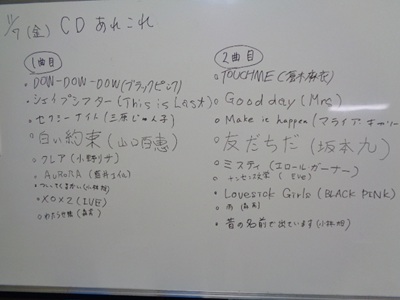 11/7 (金) CDあれこれ
1曲目
DOW-DOW-DOW(ブラックピンク)
シェイプシフター(This is Last)
セクシーナイト(三原じゅん子)
白い約束(山口百恵)
クレア(小野リサ)
AURORA(藍井エイル)
ついてくるかい(小林旭)
XOXZ(IVE)
わたらせ橋(森高)
2曲目
TOUCH ME(倉木麻衣)
Good day(Mrs)
Make it happen(マライア・キャリー)
友だちだ(坂本九)
ミスティ(エロールガーナー)
ナンセンス文学(Eve)
Lovesick Girls(BLACK PINK)
雨(森高)
昔の名前で出ています(小林旭)